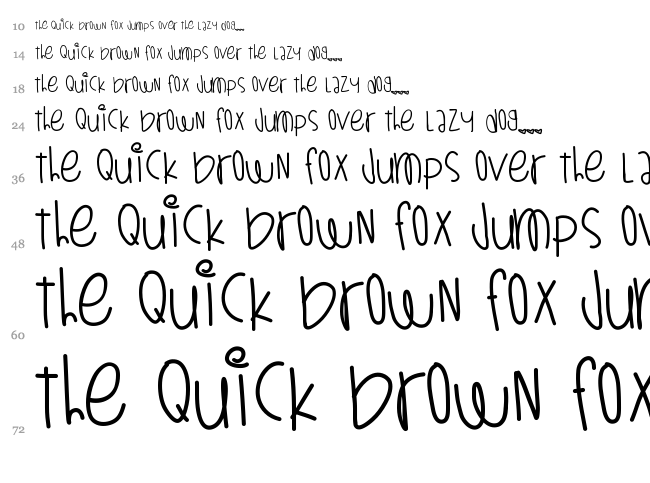 10 the Quick brown fox Jumps over the Lazy dog...
14 the Quick brown fox Jumps over the Lazy dog...
18 the Quick brown fox Jumps over the Lazy dog...
24 the Quick brown fox Jumps over the Lazy dog...
36 the Quick brown fox Jumps over the La
48 the Quick brown fox Jumps ov
60 the Quick brown fox Jur
72 the Quick brown fox